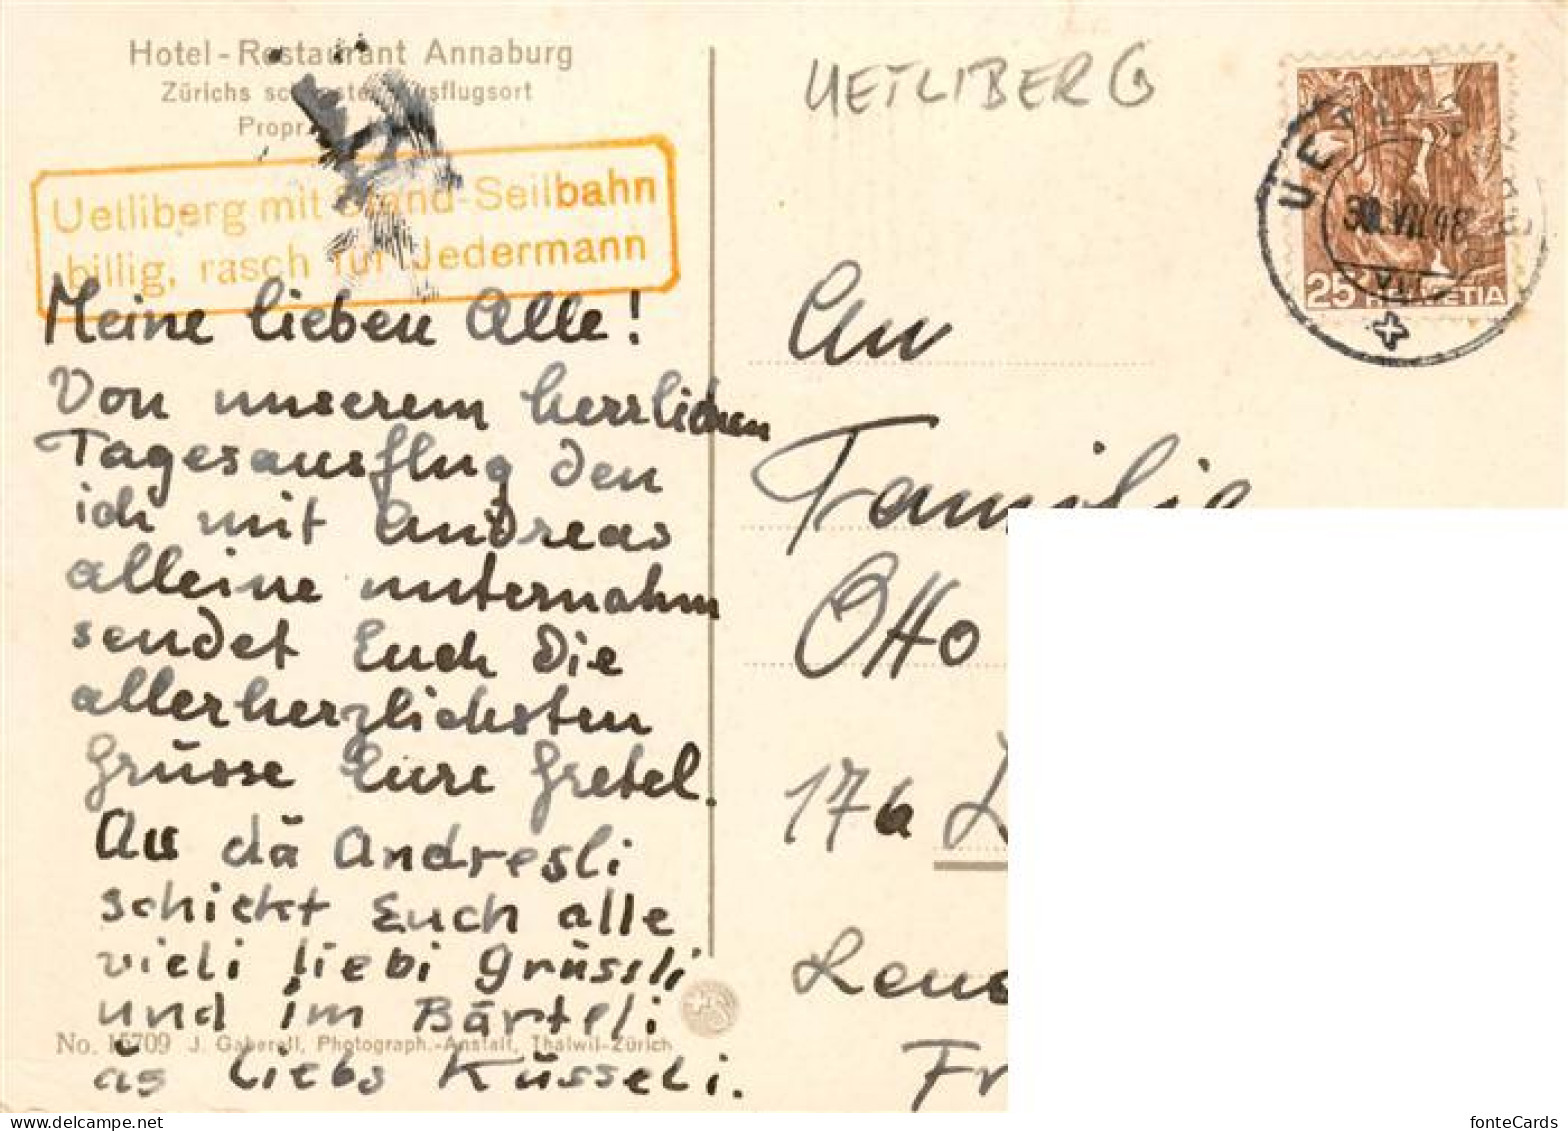 Hotel-Restaurant Annaburg
Zürichs schönster Ausflugsort
Propr.
Uetliberg mit Stand-Seilbahn
billig, rasch für Jedermann
Meine lieben Alle!
Von unserem herrlichen
Tagesausflug den
ich mit Andreas
alleine unternahm
sendet Euch die
allerherzlichsten
Grüsse Eure Gretel.
Au dä Andresli
schickt Euch alle
vieli liebi Grüssli
und im Bärteli
äs liebs Küsseli.
No. 15709 J. Gaberell, Photograph.-Anstalt, Thalwil-Zürich
UETLIBERG
UETLIBERG
30.VII.48
VII
25 HELVETIA
An
Familie
Otto
176
Fr
fonteCards